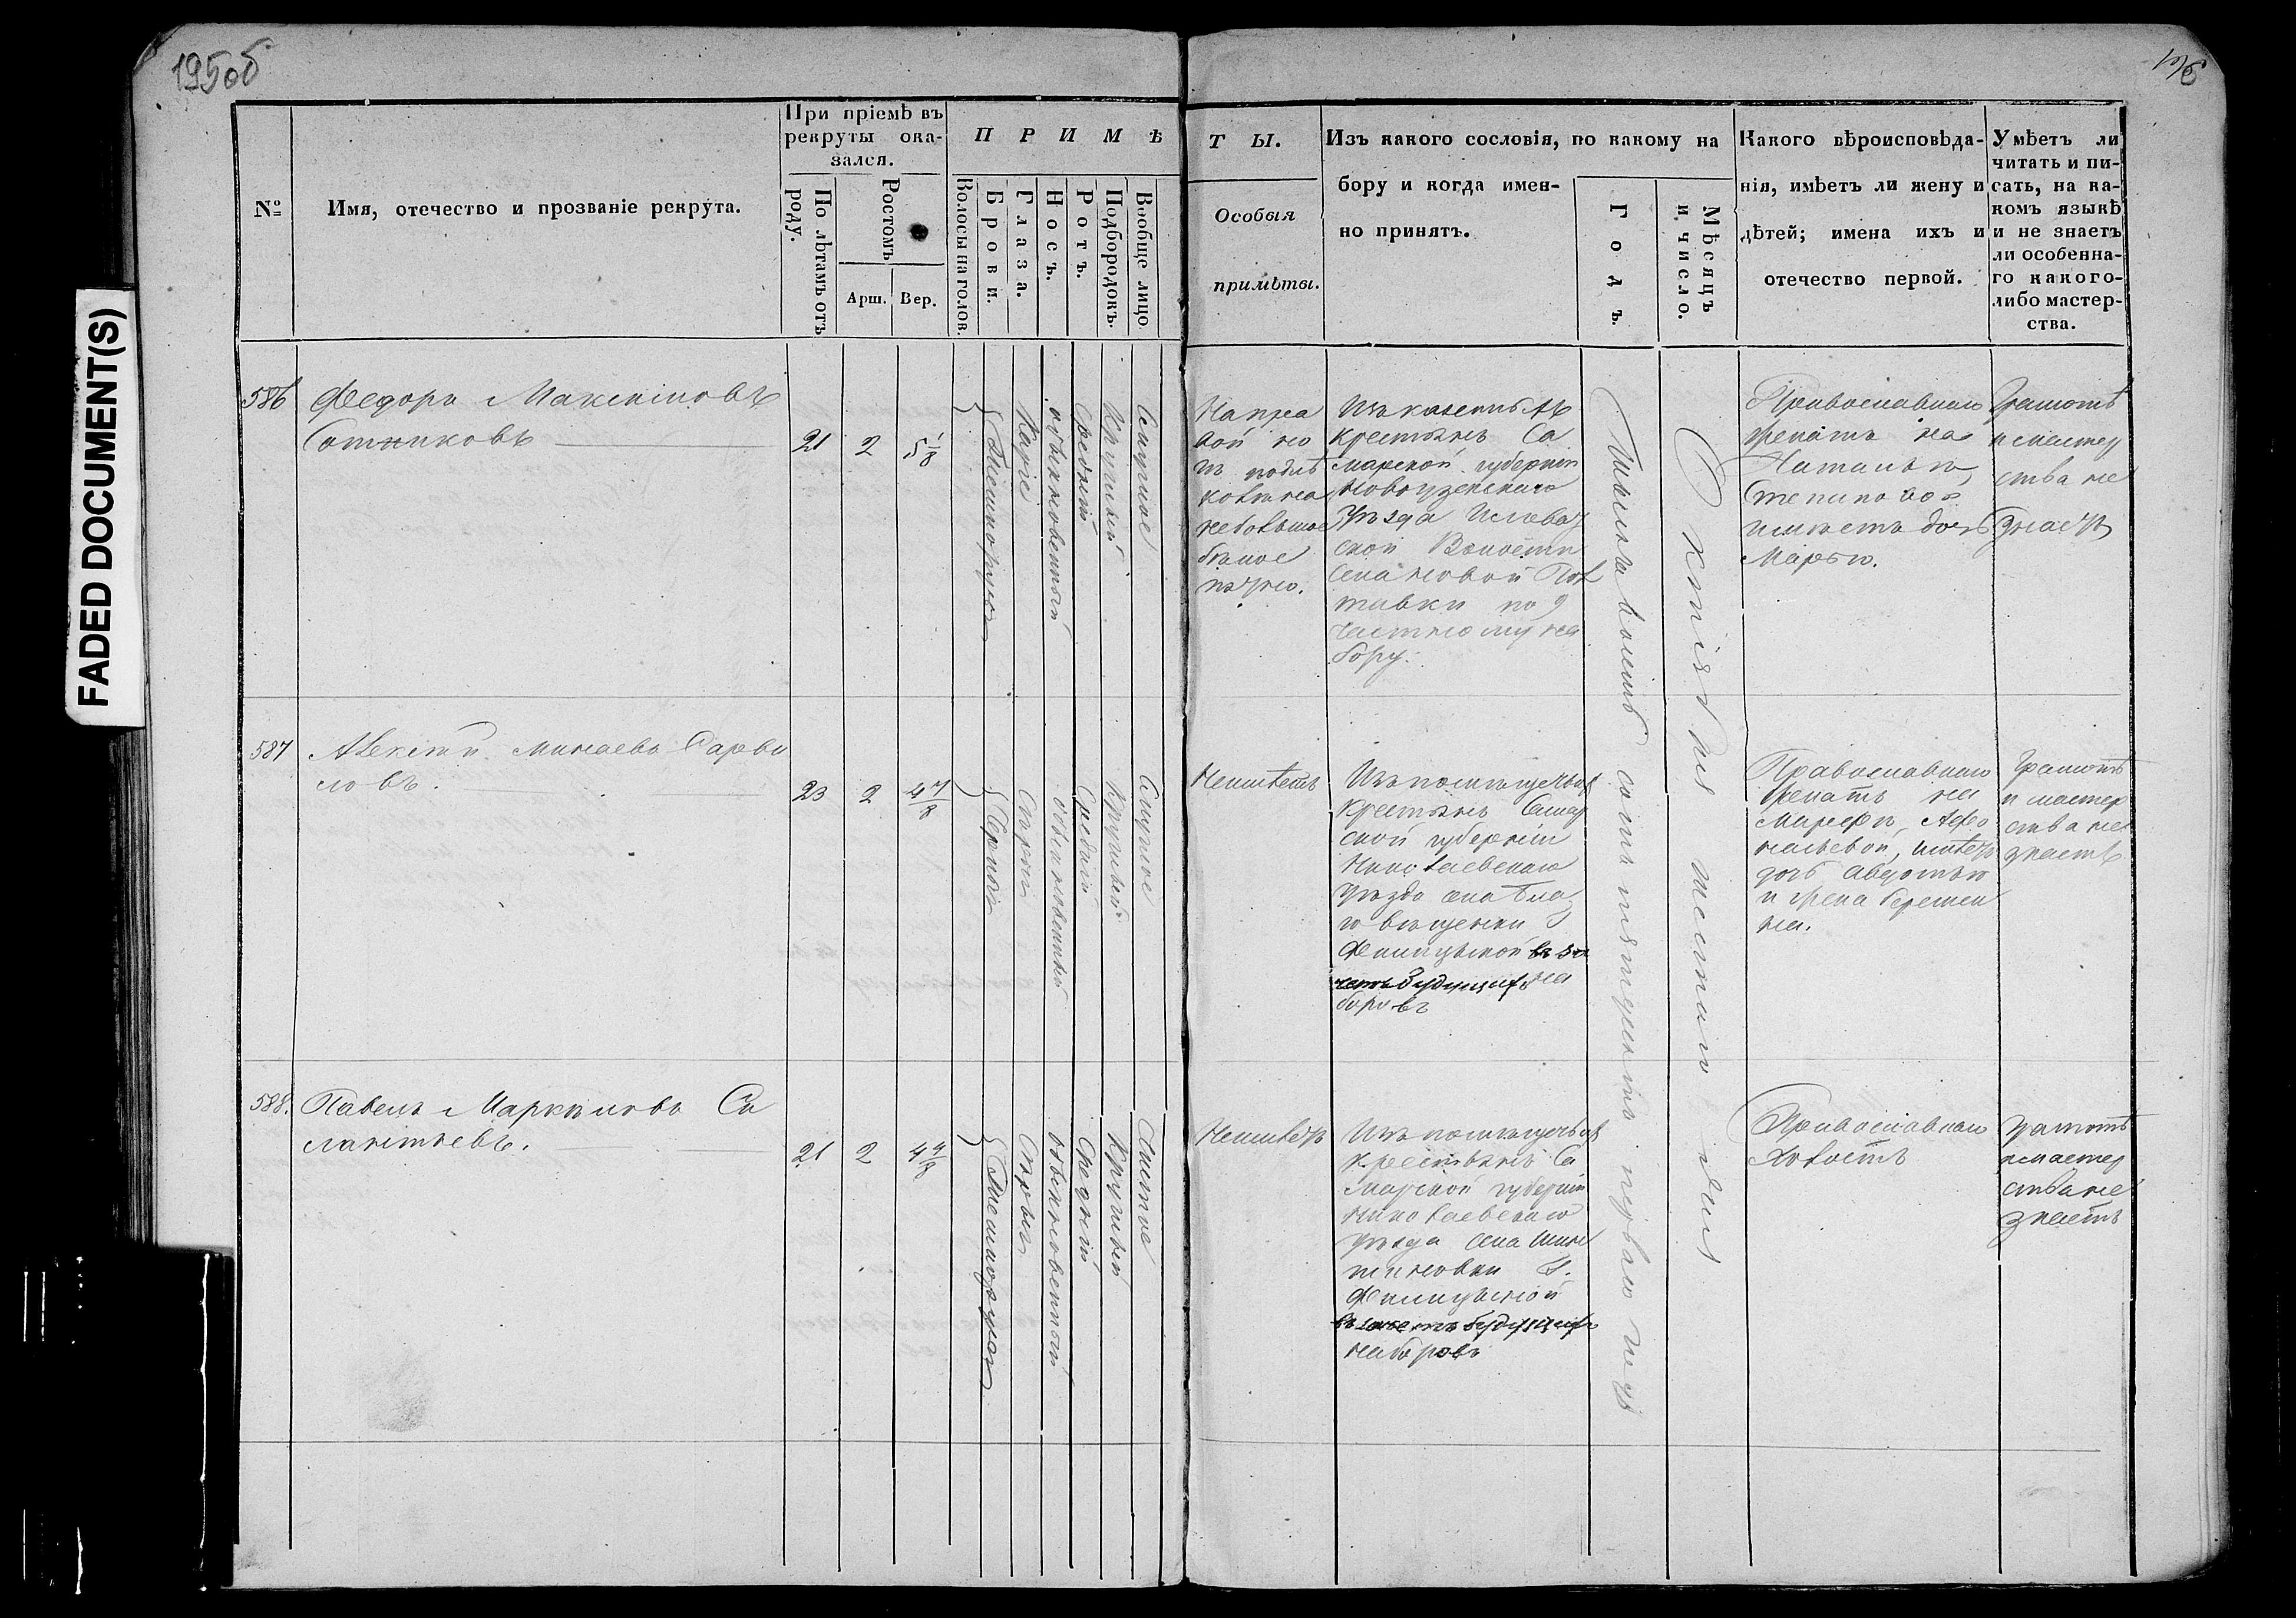 195об
FADED DOCUMENT(S)
№
Имя, отечество и прозваніе рекрута.
При пріемѣ въ
рекруты ока-
зался.
По лѣтамъ отъ
роду.
Ростомъ
Арш.
Вер.
П Р И М Ѣ
Волосы на голов.
Брови.
Глаза.
Носъ.
Ротъ.
Подбородокъ.
Вообще лицо
Т Ы.
Особыя
примѣты.
Изъ какого сословія, по какому на
бору и когда имен-
но принятъ.
Годъ.
Мѣсяцъ
и число.
Какого вѣроисповѣда-
нія, имѣетъ ли жену и
дѣтей; имена ихъ и
отечество первой.
Умѣетъ ли
читать и пи-
сать, на ка-
комъ языкѣ
и не знаетъ
ли особенна-
го какого-
либо мастер-
ства.
586
Федоръ Максимовъ
Сотниковъ
21
2
5 1/8
Темнорусы
Каріе
обыкновенный
средній
круглый
Смуглое
На пра
вой но
гѣ подлѣ
колѣна
небольшое
бѣлое
пятно.
Изъ казенныхъ
крестьянъ Са
марской губерніи
Новоузенскаго
Уѣзда
ской Волости
села Новой Пол
тавки по 9
частному на
бору.
Тысяча восемьсотъ пятьдесятъ перваго года
Октября шестаго дня
Православнаго
женатъ на
Натальѣ
Степановой
имѣетъ дочь
Марью.
Грамотѣ
и мастер
ства не
знаетъ
587
Алексѣй Минаевъ
ловъ.
23
2
4 7/8
Черные
Сѣрые
обыкновенный
Средній
круглый
Смуглое
Неимѣетъ
Изъ помѣщичьихъ
крестьянъ Самар
ской губерніи
Николаевскаго
Уѣзда села Бла
говѣщенки Г.
въ за
четъ будущихъ на
боровъ
Православнаго
женатъ на
Марфѣ Афо
насьевой, имѣетъ
дочь Авдотью
и жена беремен
на.
Грамотѣ
и мастер
ства не
знаетъ
588.
Павелъ Маркеловъ Си
лантьевъ.
21
2
4 4/8
Темнорусы
Сѣрые
обыкновенный
Средній
круглый
Чистое
Неимѣетъ
Изъ помѣщичьихъ
крестьянъ Са
марской губерніи
Николаевскаго
уѣзда села
Г.
въ зачетъ будущихъ
наборовъ
Православнаго
Холостъ
грамотѣ
и мастер
ства не
знаетъ